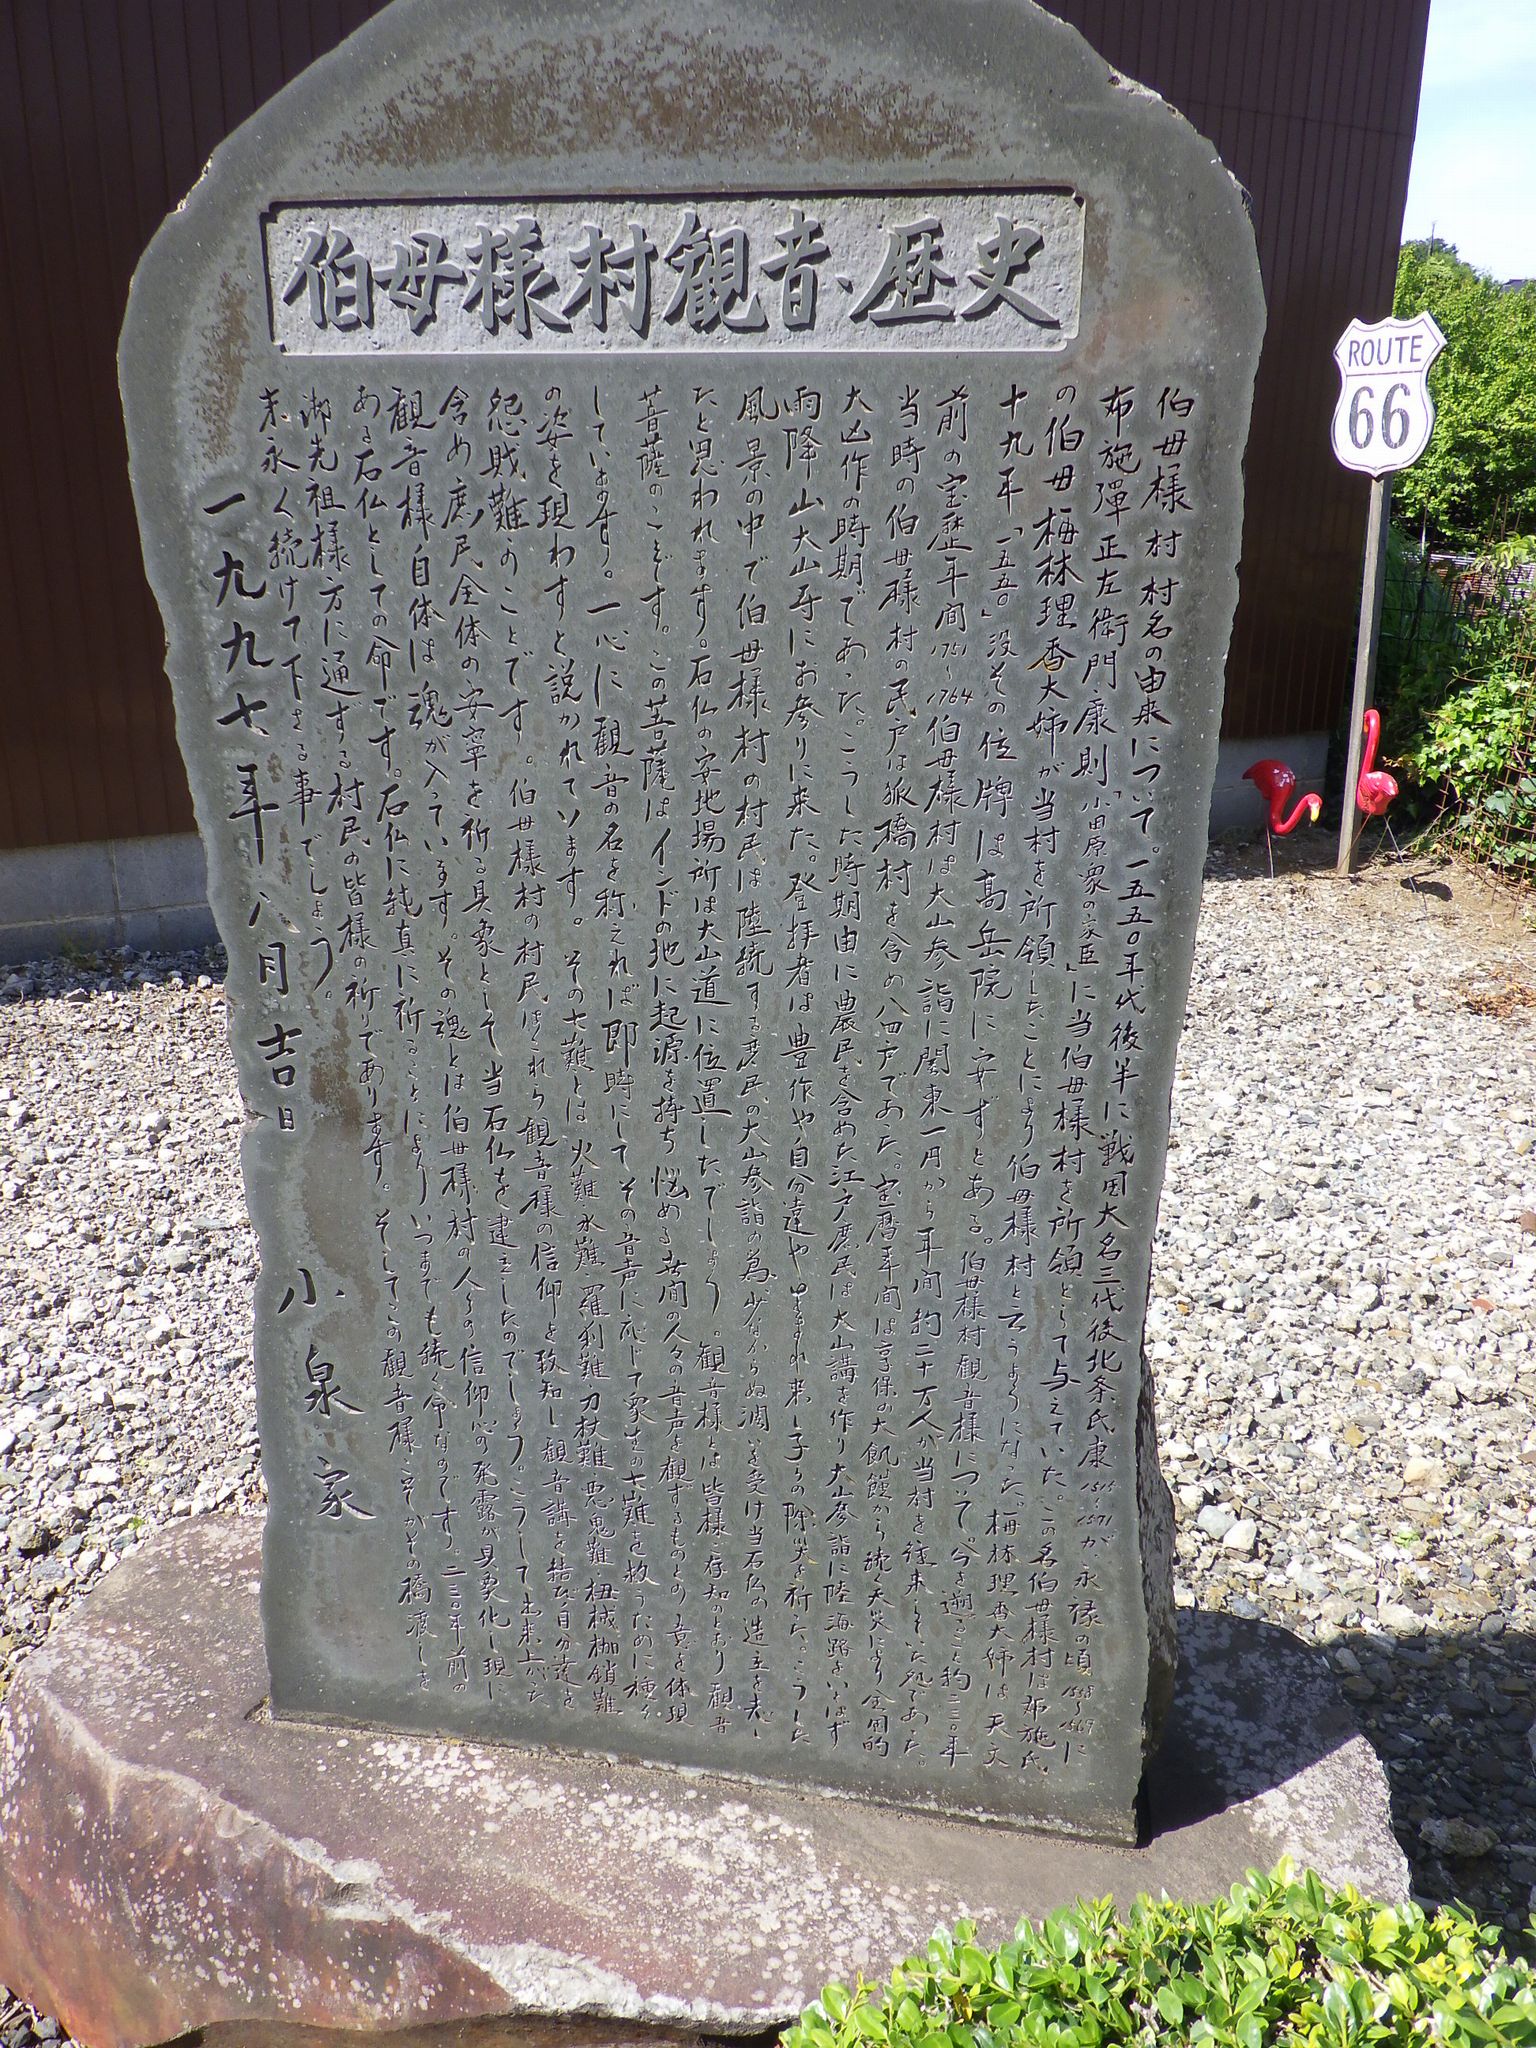 伯母様村観音、歴史
伯母様村 村名の由来について。一五五〇年代後半に戦国大名三代後北条氏康1515〜1571が、永禄の頃1558〜1569に
布施彈正左衛門康則「小田原衆の家臣」に当伯母様村を所領として与えていた。この名伯母様村は布施氏
の伯母梅林理香大姉が当村を所領したことにより伯母様村と云うようになった。梅林理香大姉は天文
十九年「一五五〇」没その位牌は高岳院に安ずとある。伯母様村観音様について。今を遡ること約二三〇年
前の宝歴年間1751〜1764伯母様村は大山参詣に関東一円から年間約二十万人が当村を往来していた処であった。
当時の伯母様村の民戸は狐橋村を含め八四戸であった。宝暦年間は享保の大飢饉から続く天災により全国的
大凶作の時期であった。こうした時期由に農民を含めた江戸庶民は大山講を作り大山参詣に陸海路をいとはず
雨降山大山寺にお参りに来た。登拝者は豊作や自分達や生まれ来し子らの除災を祈った。こうした
風景の中で伯母様村の村民は陸続する庶民の大山参詣の為、少なからぬ潤いを受け当石仏の造立を志し
たと思われます。石仏の安地場所は大山道に位置したでしょう。観音様とは皆様ご存知のとおり観音
菩薩のことです。この菩薩はインドの地に起源を持ち悩める世間の人々の音声を観ずるものとの意を体現
しています。一心に観音の名を称えれば即時にしてその音声に応じて衆生の七難を救うために種々
の姿を現わすと説かれています。その七難とは火難・水難・羅刹難・刀杖難・悪鬼難・杻械枷鎖難
怨賊難のことです。伯母様村の村民はくれら観音様の信仰を致知し観音講を結び自分達を
含め庶民全体の安寧を祈る具象として当石仏を建立したのでしょう。こうして出来上がった
観音様自体は魂が入っています。その魂とは伯母様村の人々の信仰心の発露が具象化し現に
ある石仏としての命です。石仏に純真に祈ることによりいつまでも続く命なのです。二三〇年前の
御先祖様方に通ずる村民の皆様の祈りであります。そしてこの観音様こそがその橋渡しを
末永く続けて下さる事でしょう。
一九九七年八月吉日 小泉家
ROUTE
66